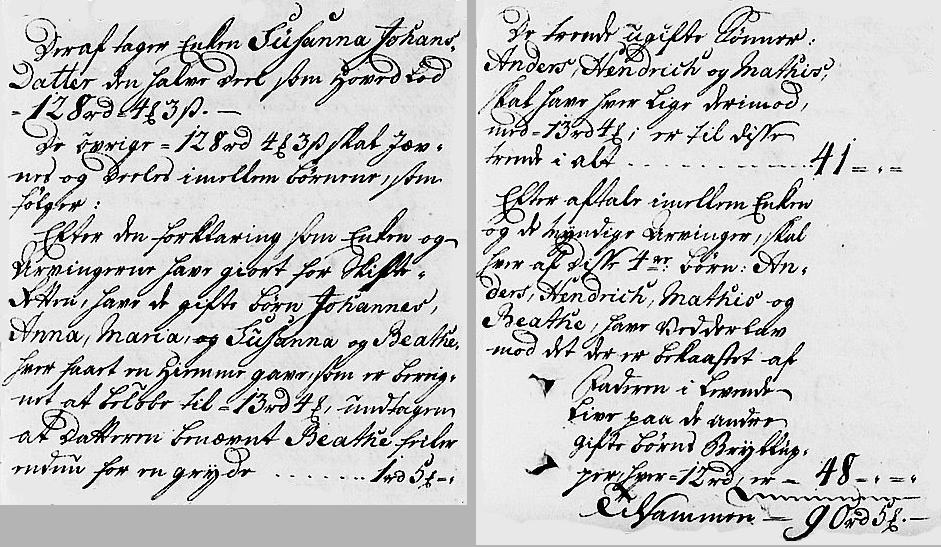 Deraf tager Enken Susanna Johans-
Datter den halve Deel som Hoved Lod
= 128rd 4 ß 3 ß. —
De övrige = 128rd 4 ß 3 ß skal Jæv-
nes og Deeles imellem börnene, som
fölger:
Efter den forklaring som Enken og
Arvingerne have giort for Skifte-
Retten, have de gifte börn Johannes,
Anna, Maria, og Susanna og Beathe,
hver faaet en Hiemme gave, som er bereg-
net at belöbe til = 13rd 4 ß, undtagen
at Datteren benævnt Beathe feiler
endnu for en gryde ........ 1rd 5 ß -"
De trende ugifte Sönner:
Anders, Hendrich og Mathis,
skal have hver lige derimod,
med = 13rd 4 ß; er til disse
trende i alt ............ 41 = " =
Efter aftale imellem Enken
og de myndige Arvinger, skal
hver af disse 4re börn: An-
ders, Hendrich, Mathis og
Beathe, have Vedderlav
mod det der er bekaastet af
Faderen i levende
Live paa de andre
gifte börns Bryllup-
per, hver = 12rd, er — 48 = " = "
Tilsammen — 90rd 5 ß. —